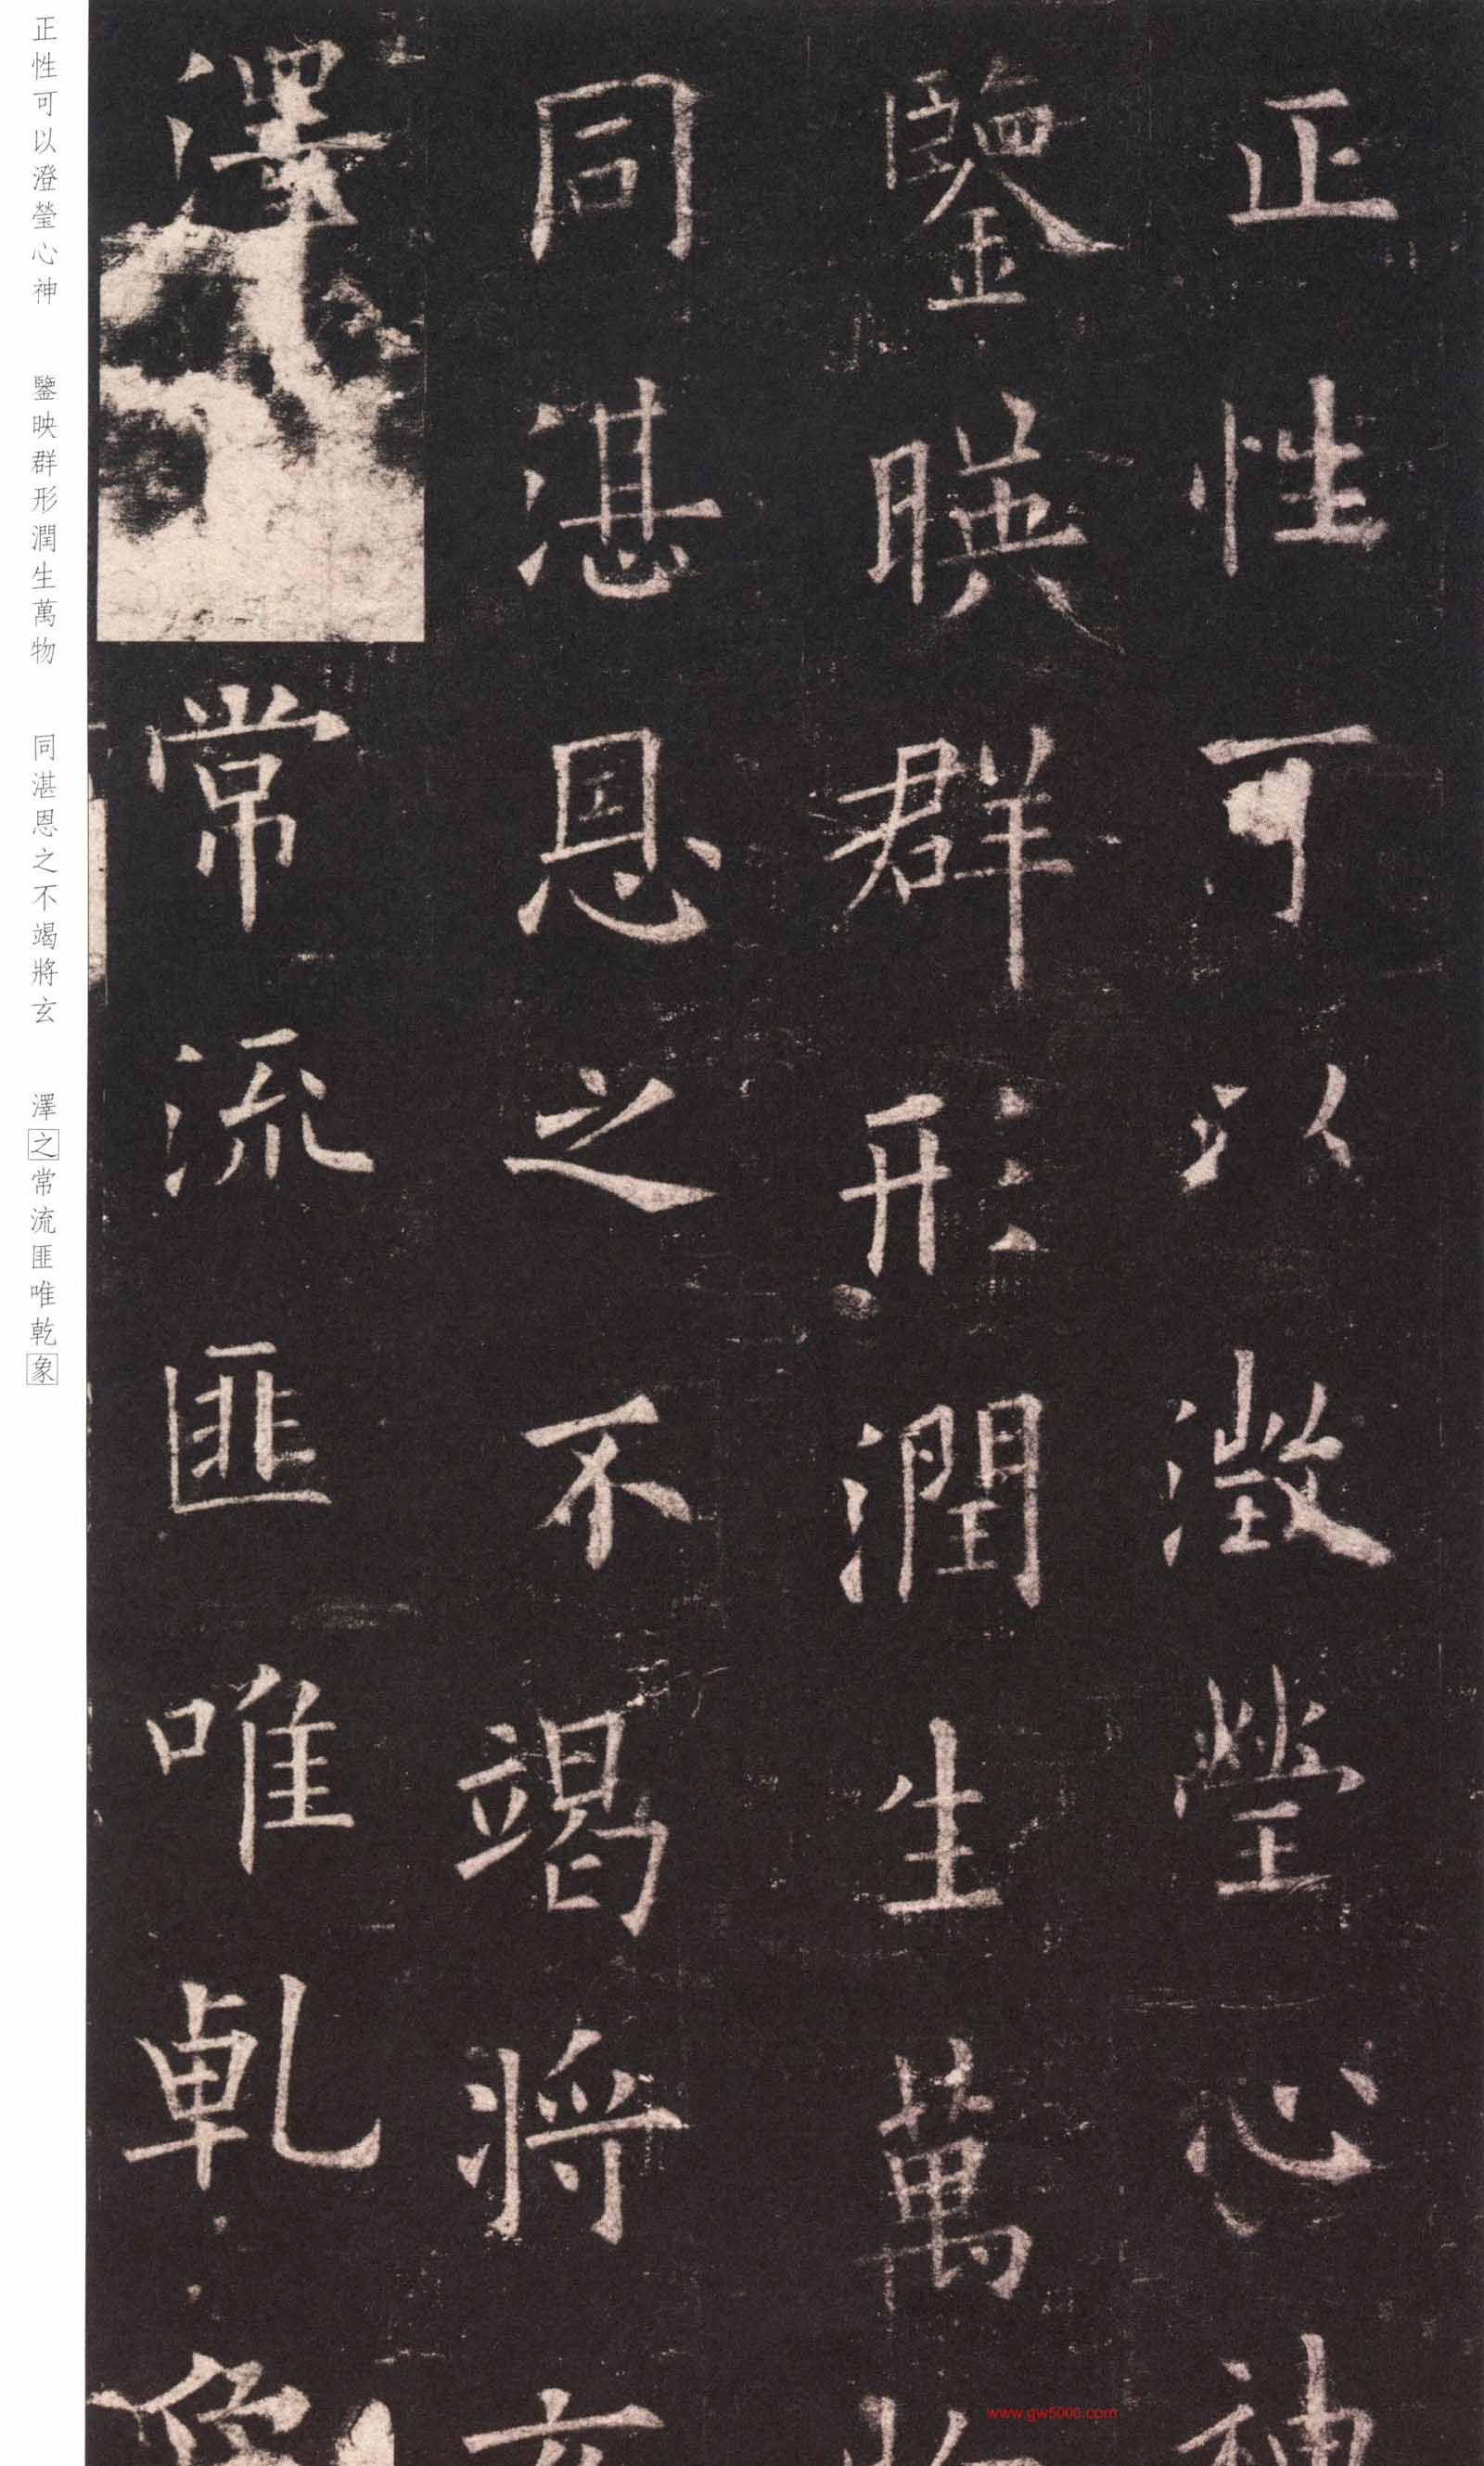 正性可以澂瑩心神
鑒暎群形潤生萬物
同湛恩之不竭將玄
澤常流匪唯乾象
正性可以澄瑩心神　鑒映群形潤生萬物　同湛恩之不竭將玄　澤之常流匪唯乾象
www.gw5000.com